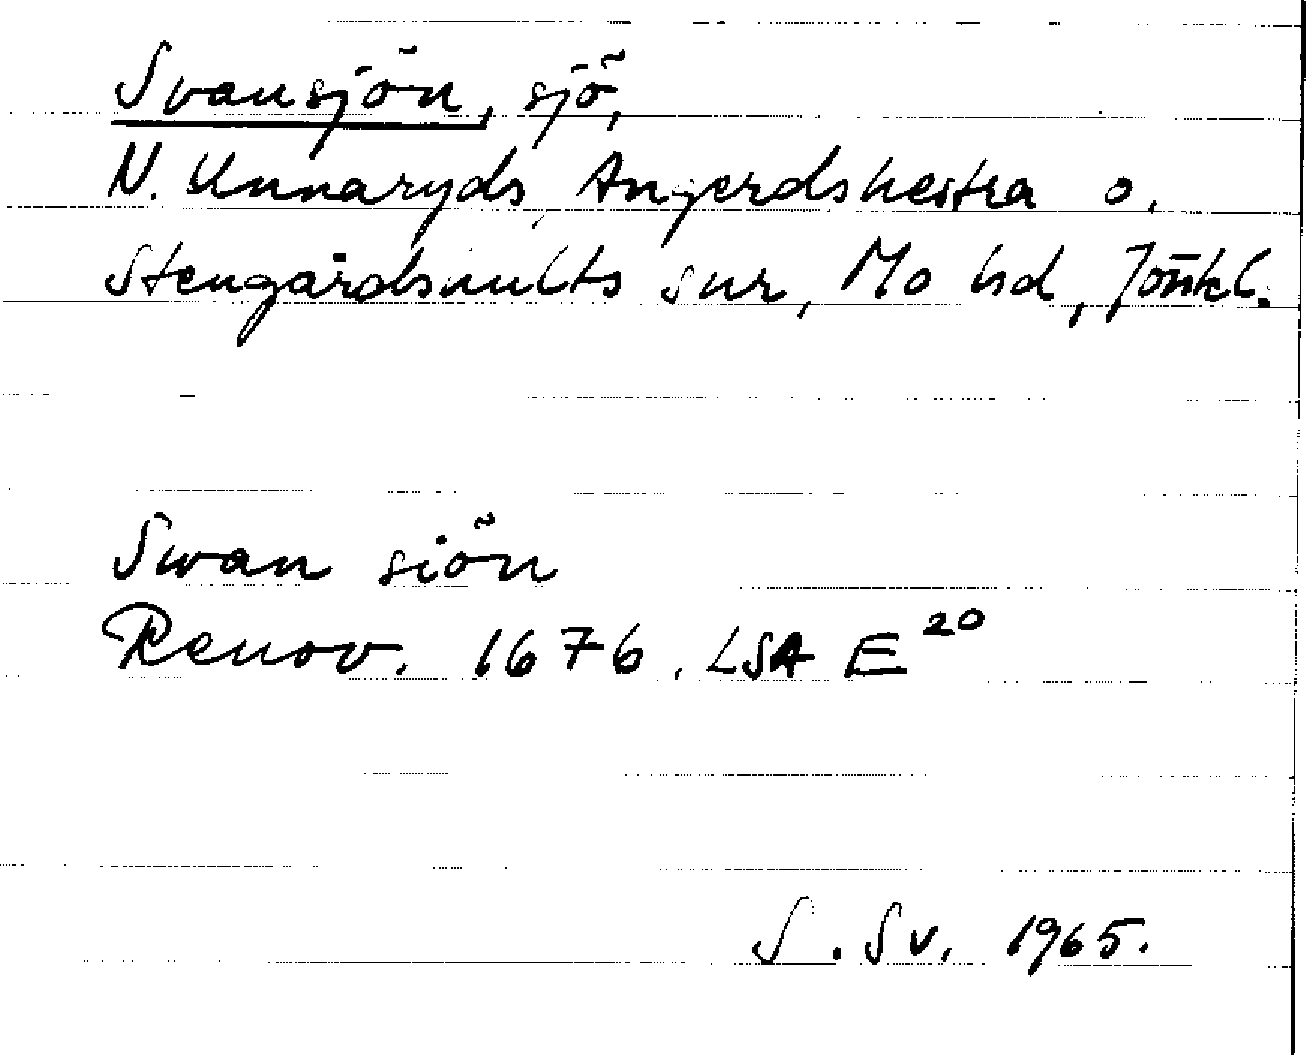 Svansjön, sjö,
N. Unnaryds, Angerdshestra o.
Stengårdshults snr, Mo hd, Jönk l.
Swan siön
Renov. 1676. LSA E 20
S. Sv. 1965.